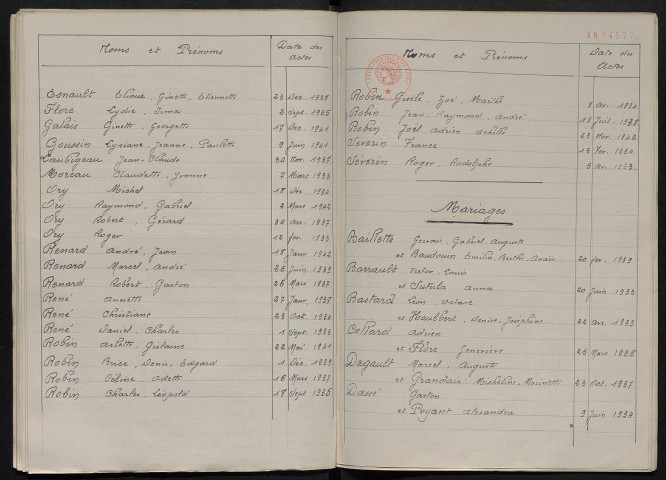 Noms et Prénoms
Date des actes
Esnault Eliane, Ginette, Etiennette 23 Déc. 1939
Flore Lydie, Irma 2 Sept. 1935
Galais Ginette, Georgette 17 Déc. 1941
Goussin Lysiane, Jeanne, Paulette 9 Juin 1941
Laubigeau Jean-Claude 30 Nov. 1937
Moreau Claudette, Yvonne 7 Mars 1933
Ory Michel 18 Déc. 1934
Ory Raymond, Gabriel 2 Mars 1942
Ory Robert, Gérard 30 Avr. 1937
Ory Roger 12 Fév. 1933
Renard André, Jean 18 Janv 1942
Renard Marcel, André 26 Juin 1939
Renard Robert, Gaston 26 Mars 1937
René Annette 27 Janv 1938
René Christiane 28 Oct.
René Daniel, Charles 1 Sept. 1932
Robin Arlette, Gislaine 22 Mai 1941
Robin Brice, Denis, Edgard 1 Déc. 1939
Robin Céline, Odette 16 Mars 1937
Robin Charles, Léopold 18 Sept 1936
AN
Noms et Prénoms
Date des actes
Robin Gisèle, Zoé, Marthe 8 Avr. 1934
Robin Jean, Raymond, André 18 Juil. 1938
Robin Joël Adrien Achille 23 Nov. 1942
Séverin France 13 Fév. 1934
Séverin Roger, Rodolphe 5 Avr. 1933
Mariages
Baillette Gervais, Gabriel, Auguste
et Baudouin Emilie, Berthe, Anaïs 20 Fév. 1939
Barrault Victor, Louis
et Sikula Anna 20 Juin 1932
Bastard Léon, Octave
et Haulbert, Denise, Joséphine 22 Avr. 1933
Collard Adrien
et Flore Geneviève 25 Mars 1935
Dagault Marcel, Auguste
et Grandais Micheline, Mauricette 23 Oct. 1937
Dassé Gaston
et Poyant Alexandre 9 Juin 1934